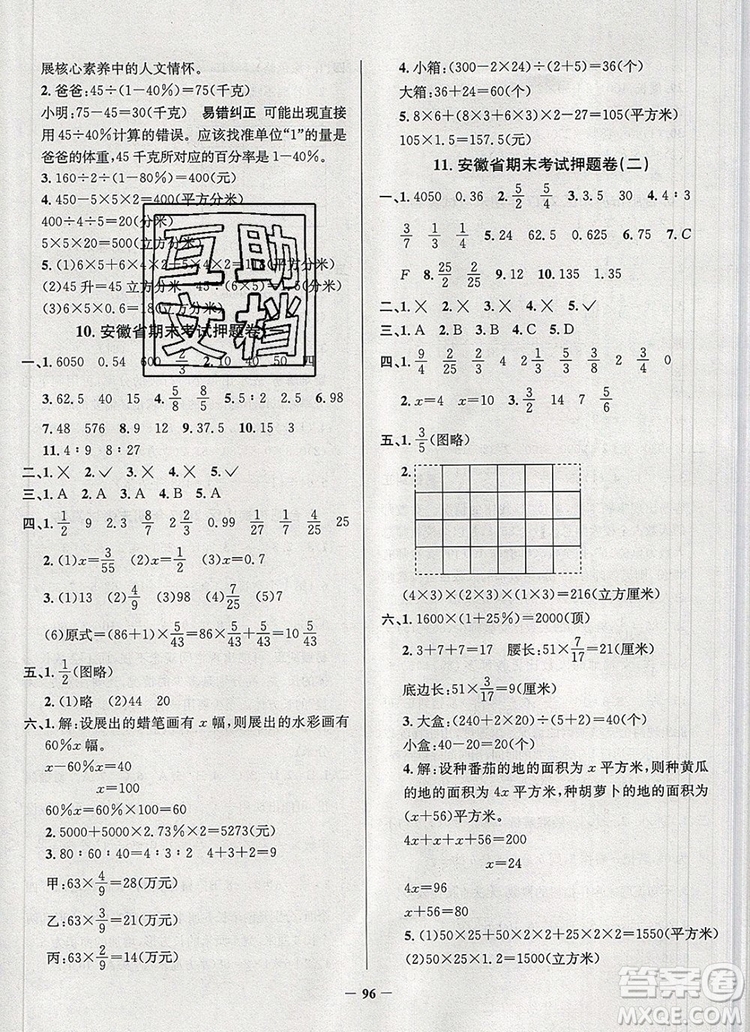 展核心素养中的人文情怀。
2.爸爸:45÷(1-40%)=75(千克)
小明:75-45=30(千克) 易错纠正 可能出现直接
用45÷40%计算的错误。应该找准单位“1”的量是
爸爸的体重,45千克所对应的百分率是1-40%。
3.160÷2÷(1-80%)=400(千米)
4.450÷5×5×2=900(平方分米)
400÷4÷5=20(分米)
5×5×20=500(立方分米)
5.(1)6×5+6×4×2+5×4×2=118(平方分米)
(2)45升=45立方分米 45÷
(3)6×5×0.6=18(立方分米)
10.安徽省期末考试押题卷
一、1.6050 0.54 600 2/3 2.40 50 四
3.62.5 40 4.5/8 8/5 5.5∶2 2.5 6.98
7.48 576 8.12 9.37.5 10.15 25
11.4∶9 8∶27
二、1.× 2.✓ 3.× 4.× 5.✓
三、1.A 2.A 3.A 4.B 5.A
四、1.1/2 9 2.3 8/27 2/3 0.99 1/27 4/25 25
2.(1)x=3/55 (2)x=1/2 (3)x=0.7
3.(1)13 (2)4/9 (3)98 (4)7/25 (5)2
(6)原式=(86+1)×5/43=86×5/43+5/43=10 5/43
五、1.1/2(图略)
2.(1)略 (2)44 20
六、1.解:设展出的蜡笔画有x幅,则展出的水彩画有
60%x幅。
x-60%x=40
x=100
60%x=60%×100=60
2.5000+5000×2.73%×2=5273(元)
3.80∶60∶40=4∶3∶2 4+3+2=9
甲:63×4/9=28(万元)
乙:63×3/9=21(万元)
丙:63×2/9=14(万元)
4.小箱:(300-2×24)÷(5+2)=36(个)
大箱:36+24=60(个)
5.8×6+(8×3+6×3)×2-27=105(平方米)
105×1.5=157.5(元)
11.安徽省期末考试押题卷(二)
一、1.4050 0.36 2.5/2 5/4 3.30 24 4.4∶3
3/7 1/3 1/4 5.24 62.5 0.625 6.75 7.C
F 8.25/2 25/2 9.121 10.22 4
二、1.× 2.× 3.× 4.× 5.✓
三、1.C 2.A 3.B 4.C 5.B
四、1.9/4 2/9 4/9 6 4/25 1/4 4 2/3 0
2.x=4 x=10 3.3/2 14 7 5/14
五、1.3/5(图略)
2.
(4×3)×(2×3)×(1×3)=216(立方厘米)
六、1.1600×(1+25%)=2000(顶)
2.3+7+7=17 腰长:51×7/17=21(厘米)
底边长:51×3/17=9(厘米)
3.大盒:(240+2×20)÷(5+2)=40(个)
小盒:40-20=20(个)
4.解:设种番茄的地的面积为x平方米,则种黄瓜
的地的面积为4x平方米,种胡萝卜的地的面积为
(x+56)平方米。
4x+x+x+56=200
x=24
4x=96
x+56=80
5.(1)50×25+50×2×2+25×2×2=1550(平方米)
(2)50×25×1.2=1500(立方米)
96
互助
文档
答案圈
MXQE.COM